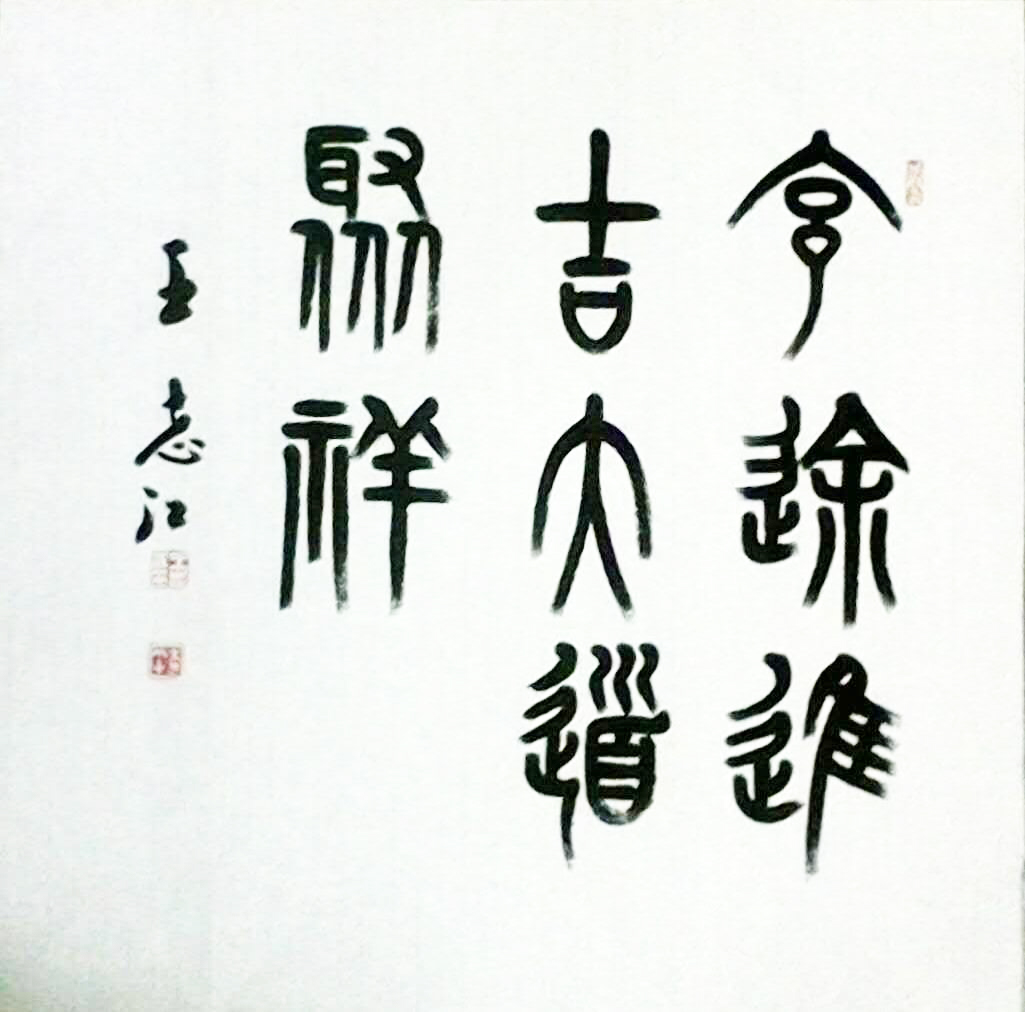 亨途進
吉大道
聚祥
王志江